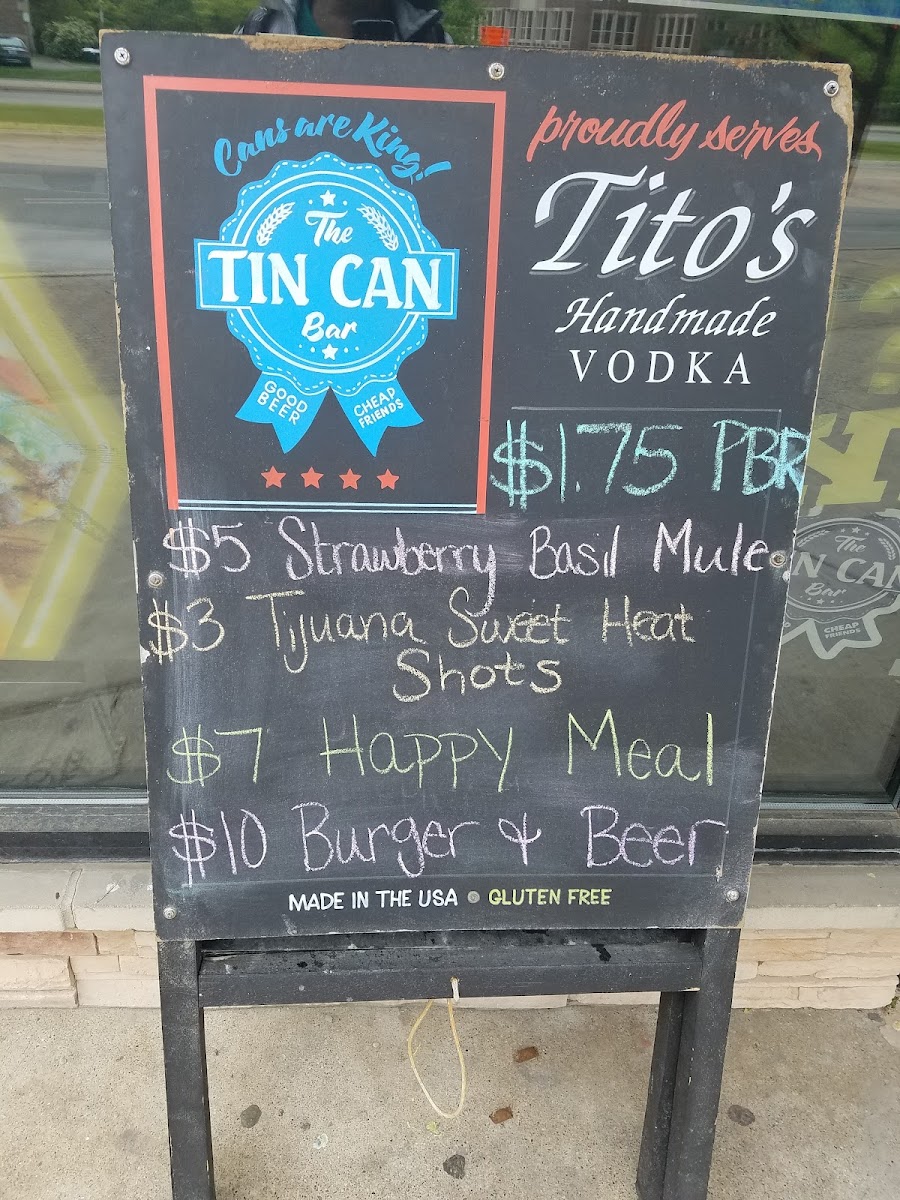 Cans are King!
The
TIN CAN
Bar
GOOD
BEER
CHEAP
FRIENDS
proudly serves
Tito's
Handmade
VODKA
$1.75 PBR
$5 Strawberry Basil Mule
$3 Tijuana Sweet Heat
Shots
$7 Happy Meal
$10 Burger & Beer
MADE IN THE USA GLUTEN FREE
The
N CAN
Bar
CHEAP
FRIENDS